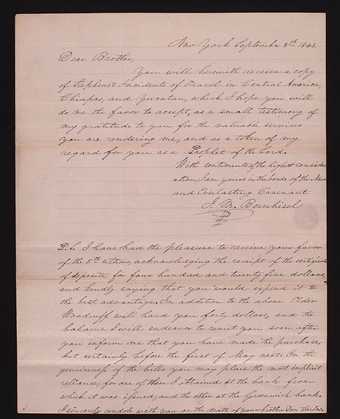 New York September 8th 1841
Dear Brother,
You will herewith receive a copy
of Stephens's Incidents of Travel in Central America,
Chiapas, and Yucatan, which I hope you will
do me the favor to accept, as a small testimony of
my gratitude to you for the valuable services
you are rendering me, and as a token of my
regard for you as a Prophet of the Lord.
With sentiments of the highest consider
ation I am yours in the bonds of the New
and Everlasting Covenant.
J. M. Bernhisel
P.S. I have had the pleasure to receive your favor
of the ultimo, acknowledging the receipt of the certificate
of deposite for four hundred and twenty five dollars,
and kindly saying that you would expend it to
the best advantage. In addition to the above Elder
Woodruff will hand you forty dollars, and the
balance I will endeavor to remit you soon after
you inform me that you have made the purchase,
but certainly before the first of May next. On the
genuineness of the bills you may place the most implicit
reliance, for one of them I obtained at the bank from
which it was issued, and the other at the Greenwich bank.
I sincerely condole with you on the death of your brother Don Carlos